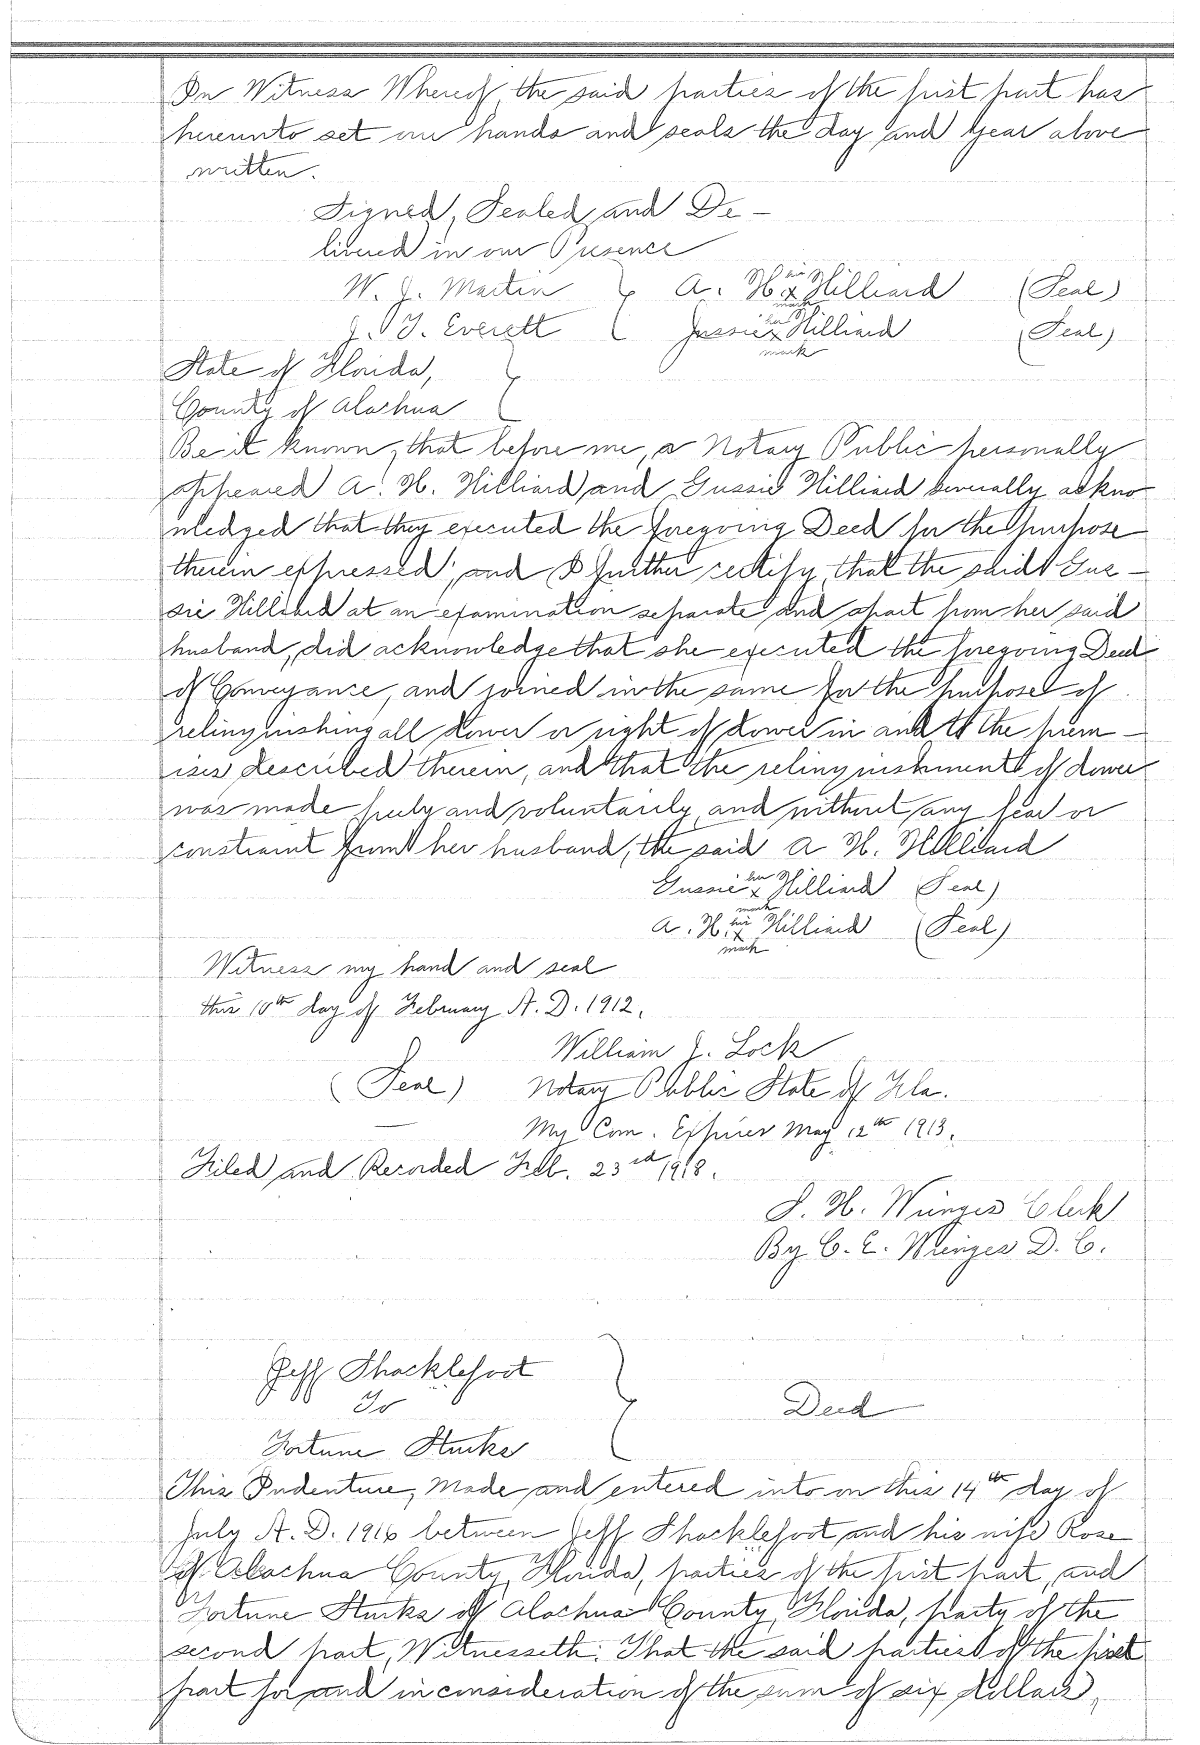 In Witness Whereof, the said parties of the first part has
hereunto set our hands and seals the day and year above
written.
Signed, Sealed and De-
livered in our Presence
W. J. Martin } A. H. his x mark Hilliard (Seal)
J. T. Everett } Jussie her x mark Hilliard (Seal)
State of Florida, }
County of Alachua
Be it known, that before me, a Notary Public personally
appeared A. H. Hilliard and Gussie Hilliard severally ackno
wledged that they executed the foregoing Deed for the purpose
therein expressed; and I further certify, that the said Gus-
sie Hilliard at an examination separate and apart from her said
husband, did acknowledge that she executed the foregoing Deed
of Conveyance, and joined in the same for the purpose of
relinquishing all dower or right of dower in and to the prem-
ises described therein, and that the relinquishment of dower
was made freely and voluntarily, and without any fear or
constraint from her husband, the said A H. Hilliard
Gussie her x mark Hilliard (Seal)
A. H. his x mark Hilliard (Seal)
Witness my hand and seal
this 10th day of February A. D. 1912.
William J. Lock
(Seal) Notary Public State of Fla.
My Com. Expires May 12th 1913.
Filed and Recorded Feb. 23rd 1918.
S. H. Wienges Clerk
By C. E. Wienges D. C.
Jeff Shacklefoot }
To Deed
Fortune Sturks
This Indenture, Made and entered into on this 14th day of
July A. D. 1916 between Jeff Shacklefoot and his wife Rose
of Alachua County, Florida, parties of the first part, and
Fortune Sturks of Alachua County, Florida, party of the
second part, Witnesseth: That the said parties of the first
part for and in consideration of the sum of six dollars,